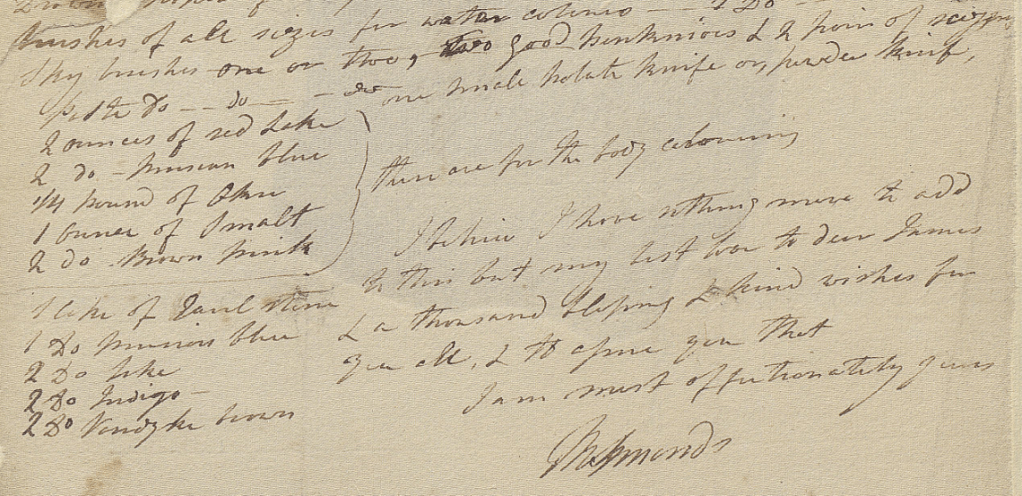 brushes of all sizes for water colours — — 2 Do —
Sky brushes one or two, two good penknives & 2 pair of
Do — — do — — do one small palate knife or, powder knife,
2 ounces of red Lake
2 do - prussian blue
these are for the body colouring
1/4 pound of Okre
1 ounce of Smalt
2 do Brown pink
I believe I have nothing more to add
to this but my best love to dear James
1 cake of stone
& a thousand blessings & kind wishes for
1 Do prussian blue
you all, & to assure you that
2 Do Lake
I am most affectionately yours
2 Do Indigo —
2 Do Vandyke brown